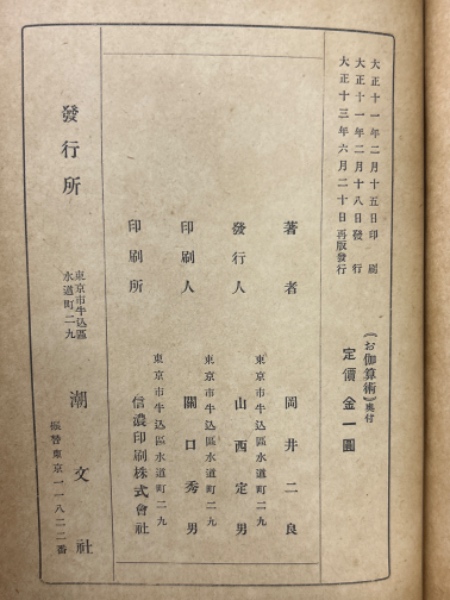 大正十一年二月十五日印刷
大正十一年二月十八日發行
大正十三年六月二十日再版發行
(お伽算術)奥付
定價金一圓
著者 岡井二良
東京市牛込區水道町二九
發行人 山西定男
東京市牛込區水道町二九
印刷人 關口秀男
東京市牛込區水道町二九
印刷所 信濃印刷株式會社
發行所
東京市牛込區
水道町二九
潮文社
振替東京一一八二二番